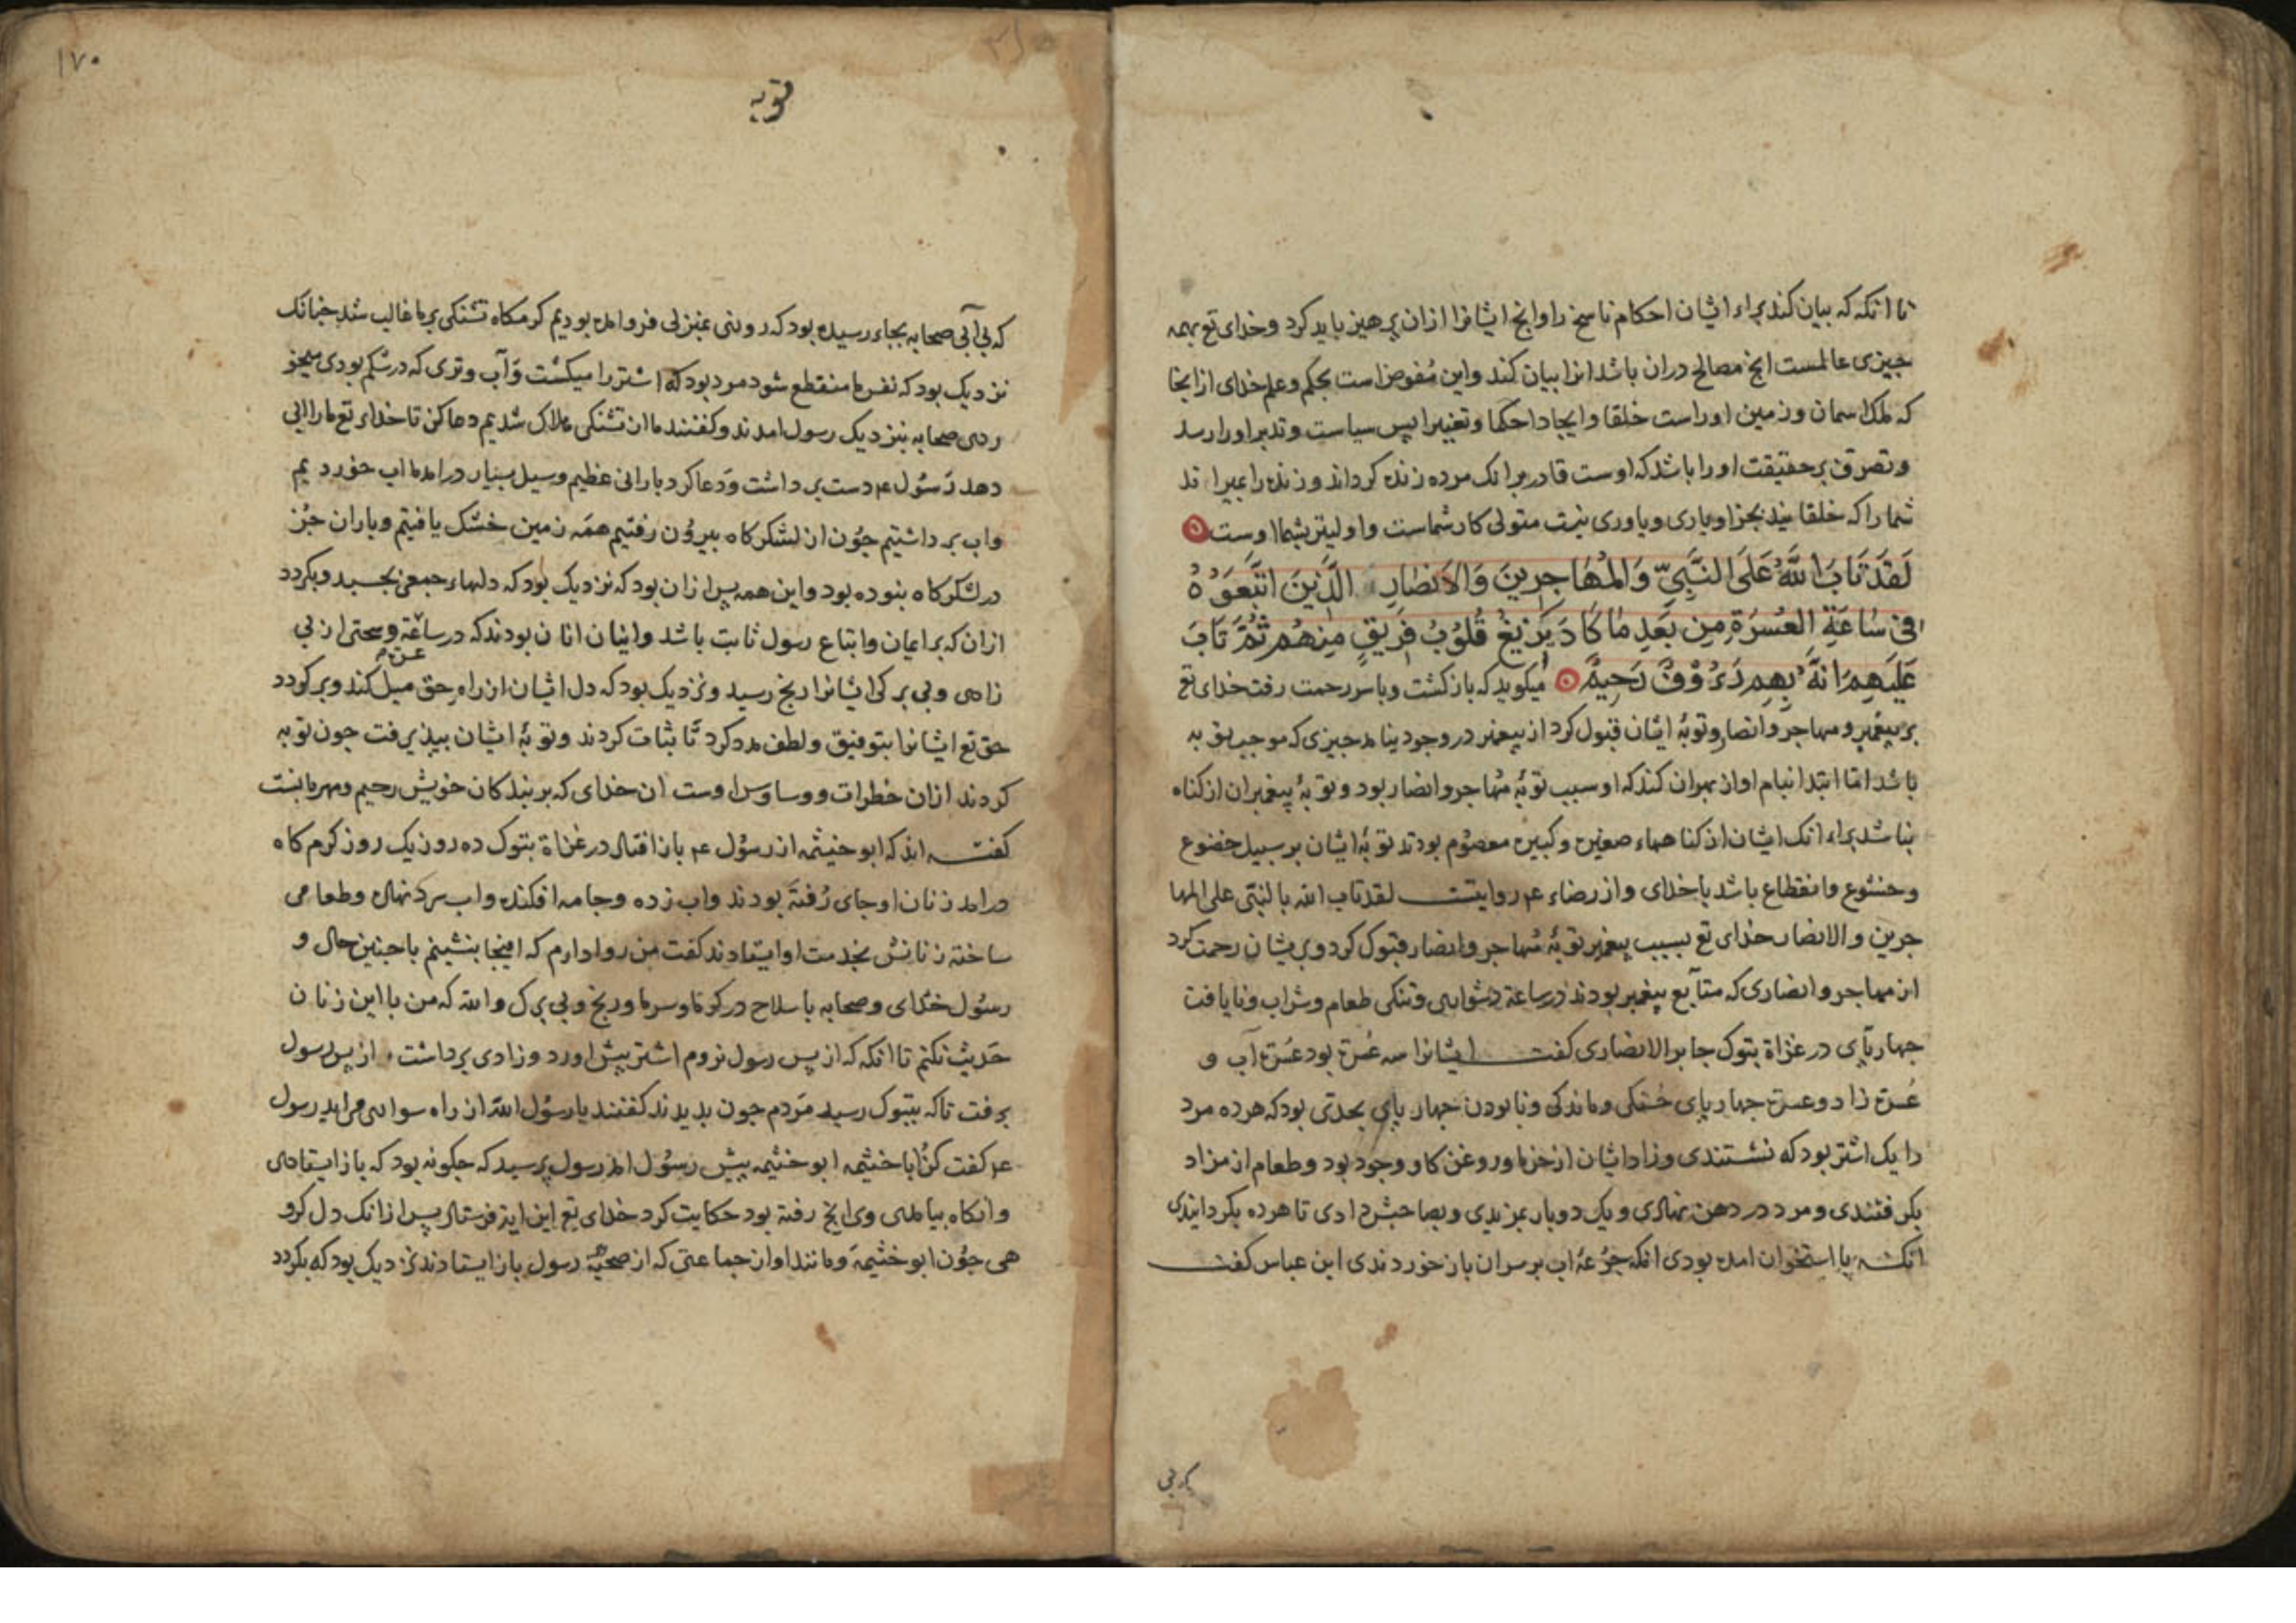 تا انکه که بیان کند براء ایشان احکام ناسخ را وانچ ایشانرا ازان پرهیز باید کرد وخدای تع بهمه
چیزی عالمست انچ مصالح دران باشد انرا بیان کند واین مفوض است بحکم وعلم خدای ازانجا
که ملک اسمان وزمین اوراست خلقا وایجادا حکما وتغییرا پس سیاست وتدبیر اورا رسد
وتصرف بر حقیقت اورا باشد که اوست قادر برانک مرده زنده کرداند وزنده را بمیراند
شما را که خلقانید بجز او یاری ویاوری نیست متولی کار شماست واولیتر بشما اوست
لَقَد تَابَ اللَّهُ عَلَى النَّبِيِّ وَالمُهَاجِرِينَ وَالاَنصَارِ الَّذِينَ اتَّبَعُوهُ
فِي سَاعَةِ العُسرَةِ مِن بَعدِ مَا كَادَ يَزِيغُ قُلُوبُ فَرِيقٍ مِنهُم ثُمَّ تَابَ
عَلَيهِم اِنَّهُ بِهِم رَءُوْفٌ رَحِيمٌ میکوید که بازکشت وباسر رحمت رفت خدای تع
بر پیغمبر ومهاجر وانصار وتوبهٔ ایشان قبول کرد از پیغمبر در وجود نیامد چیزی که موجب توبه
باشد اما ابتدا بنام او ازبهر ان کند که او سبب توبهٔ مهاجر وانصار بود وتوبهٔ پیغمبران از کناه
نباشد براء انک ایشان از کناهاء صغیره وکبیره معصوم بودند توبهٔ ایشان بر سبیل خضوع
وخشوع وانقطاع باشد با خدای واز رضاء عم روایتست لقد تاب الله بالنبی علی المها
جرین والانصار خدای تع بسبب پیغمبر توبهٔ مهاجر وانصار قبول کرد وبریشان رحمت کرد
ان مهاجر وانصاری که متابع پیغمبر بودند در ساعة دشواری وتنکی طعام وشراب ونایافت
چهارپای در غزاة تبوک جابر الانصاری کفت ایشانرا سه عسرة بود عسرة آب و
عسرة زاد وعسرة چهارپای خستکی وماندکی ونابودن چهارپای بحدی بود که هر ده مرد
را یک اشتر بود که نشستندی وزاد ایشان از خرما وروغن کاو وجو بود وطعام از مزاد
بکرفتندی ومرد در دهن نهادی ویک دوبار بمزیدی وبصاحبش دادی تا هر ده بکردانیدی
انک با استخوان امده بودی انکه جرعهٔ اب بر سر ان باز خوردندی ابن عباس کفت
که بی
۱۷۰
توبه
که بی آبی صحابه بجاء رسیده بود که روزی بمنزلی فرو امده بودیم کرمکاه تشنکی بر ما غالب شد چنانک
نزدیک بود که نفس ما منقطع شود مرد بود که اشتر را میکشت وآب وتری که در شکم بودی میخو
ردی صحابه بنزدیک رسول امدند وکفتند ما از تشنکی هلاک شدیم دعا کن تا خداء تع ما را ابی
دهد رسول عم دست برداشت ودعا کرد بارانی عظیم وسیل بسیار درامد ما اب خوردیم
واب برداشتیم چون از لشکرکاه بیرون رفتیم همه زمین خشک یافتیم وباران جز
در لشکرکاه نبوده بود واین همه پس ازان بود که نزدیک بود که دلهاء جمعی بچسبد وبکردد
ازان که بر ایمان واتباع رسول ثابت باشد واینان انان بودند که در ساعة عسرة وسختی از بی
زادی وبی برکی ایشانرا رنج رسید ونزدیک بود که دل ایشان از راه حق میل کند وبرکردد
حق تع ایشانرا بتوفیق ولطف مدد کرد تا ثبات کردند وتوبهٔ ایشان بپذیرفت چون توبه
کردند ازان خطرات ووساوس اوست ان خدای که بر بندکان خویش رحیم ومهربانست
کفته اند که ابو خیثمه از رسول عم باز افتاد در غزاة تبوک ده روز یک روز کرمکاه
درامد زنان او جای رفته بودند واب زده وجامه افکنده واب سرد نهاده وطعامی
ساخته زنانش بخدمت او ایستادند کفت من روا دارم که اینجا بنشینم با چنین حال و
رسول خدای وصحابه با سلاح در کرما وسرما ورنج وبی برک والله که من با این زنان
حدیث نکنم تا انکه که از پس رسول نروم اشتر پیش اورد وزادی برداشت از پس رسول
برفت تا که بتبوک رسید مردم چون بدیدند کفتند یا رسول الله از راه سواری می اید رسول
عم کفت کن ابا خثیمه ابو خثیمه پیش رسول امد رسول پرسید که چکونه بود که باز ایستادی
وانکاه بیامدی وی انچ رفته بود حکایت کرد خدای تع این ایة فرستاد پس ازانک دل کرو
هی چون ابو خثیمه ومانند او از جماعتی که از صحبة رسول باز ایستادند نزدیک بود که بکردد